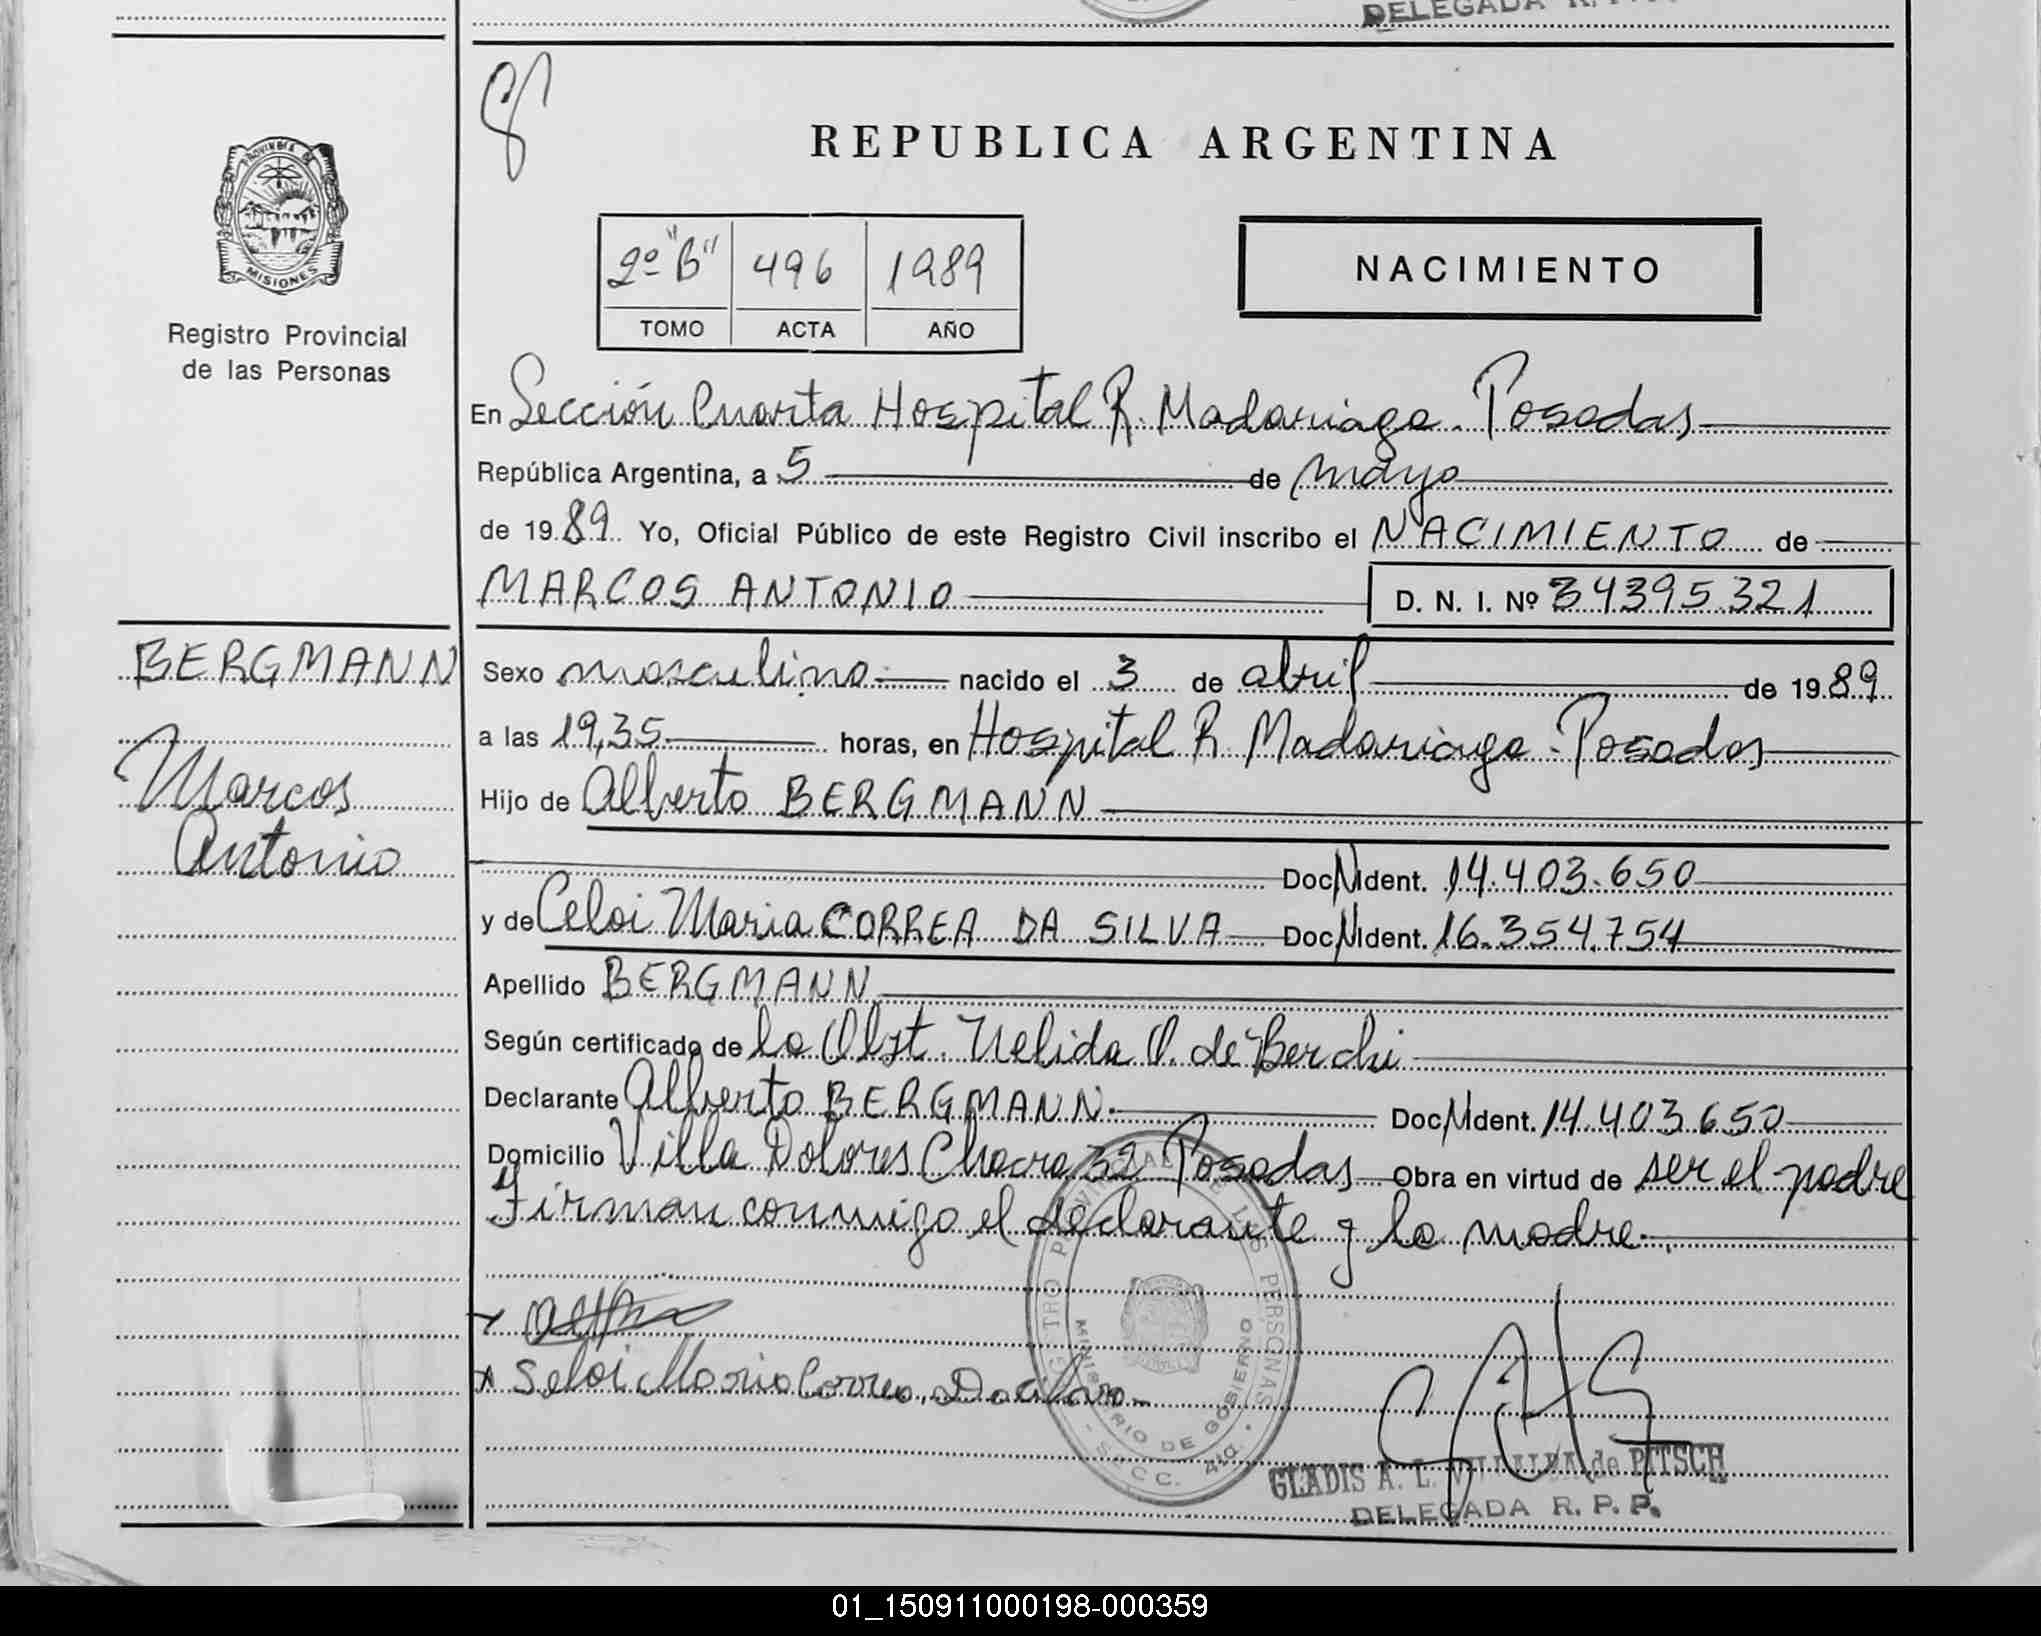 DELEGADA R.
REPUBLICA ARGENTINA
PROVINCIA DE
MISIONES
Registro Provincial
de las Personas
2º "B" 496 1989
TOMO ACTA AÑO
NACIMIENTO
En Sección Cuarta Hospital R. Madariaga. Posadas
República Argentina, a 5 de mayo
de 1989. Yo, Oficial Público de este Registro Civil inscribo el NACIMIENTO de
MARCOS ANTONIO D. N. I. Nº 34395321
BERGMANN
Marcos
Antonio
Sexo masculino nacido el 3 de abril de 1989
a las 19,35 horas, en Hospital R. Madariaga - Posadas
Hijo de Alberto BERGMANN
Doc.N.Ident. 14.403.650
y de Celoi Maria CORREA DA SILVA Doc.N.Ident. 16.354.754
Apellido BERGMANN
Según certificado de la Obst. Nelida O. de Berchi
Declarante Alberto BERGMANN. Doc.N.Ident. 14.403.650
Domicilio Villa Dolores Chacra 32 Posadas Obra en virtud de ser el padre
Firman conmigo el declarante y la madre.
x
x Seloi Maria Correa Da Silva
REGISTRO PROVINCIAL DE LAS PERSONAS
MINISTERIO DE GOBIERNO
SECC. 4ta.
GLADIS A. L. VILLALBA de PITSCH
DELEGADA R. P. P.
01_150911000198-000359